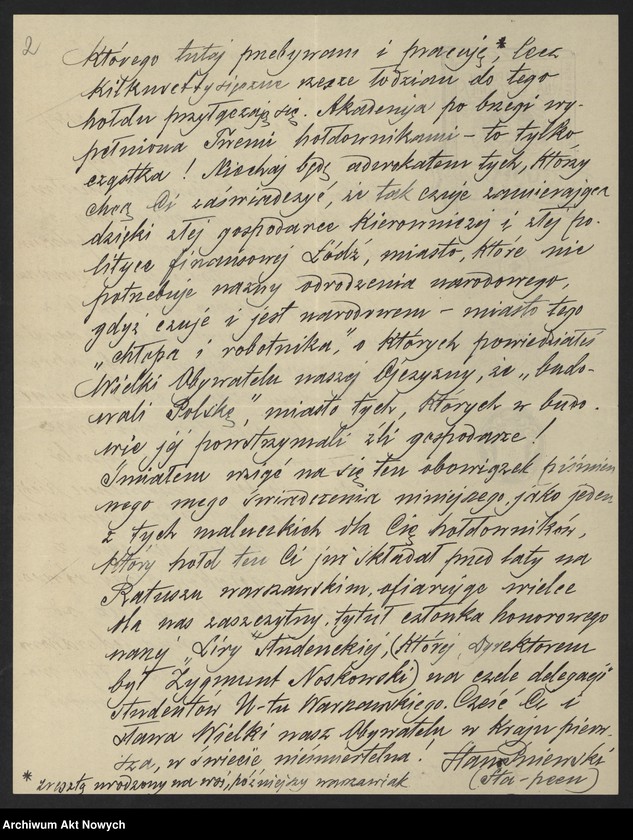 2
którego tutaj przebywam i pracuję,* lecz
kilkunastysięczne rzesze łodzian do tego
hołdu przyłączają się. Akademya po brzegi wy-
pełniona Twemi hołdownikami – to tylko
cząstka! Niechaj będę adwokatem tych, którzy
chcą Ci zaświadczyć, że tak czuje zamierająca
dzięki złej gospodarce kierowniczej i złej po-
lityce finansowej Łódź, miasto, które nie
potrzebuje nazwy odrodzenia narodowego,
gdyż czuje i jest narodowem – miasto tego
"chłopa i robotnika", o których powiedziałeś
Wielki Obywatelu naszej Ojczyzny, że "budo-
wali Polskę", miasto tych, których w budo-
wie jej powstrzymali źli gospodarze!
Śmiałem wziąć na się ten obowiązek piśmien
nego mego świadczenia niniejszego, jako jeden
z tych maluczkich dla Cię hołdowników,
który hołd ten Ci już składał przed laty na
Ratuszu warszawskim, ofiarując wielce
dla nas zaszczytny tytuł członka honorowego
naszej "Liry" Studenckiej, (której dyrektorem
był Zygmunt Noskowski) na czele delegacji
studentów U-tu Warszawskiego. Cześć Ci i
sława Wielki nasz Obywatelu w kraju pierw-
sza, w świecie nieśmiertelna!
(Sta-peen)
* zresztą urodzony na wsi, późniejszy warszawiak
Archiwum Akt Nowych